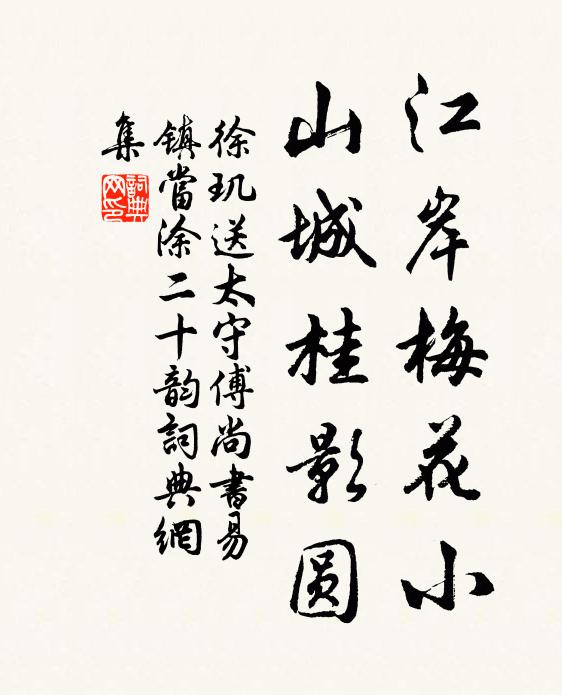 江岸梅花小
山城桂影圆
徐玑送太守傅尚書易
鎮當涂二十韵詞典網
集
詞典
网印